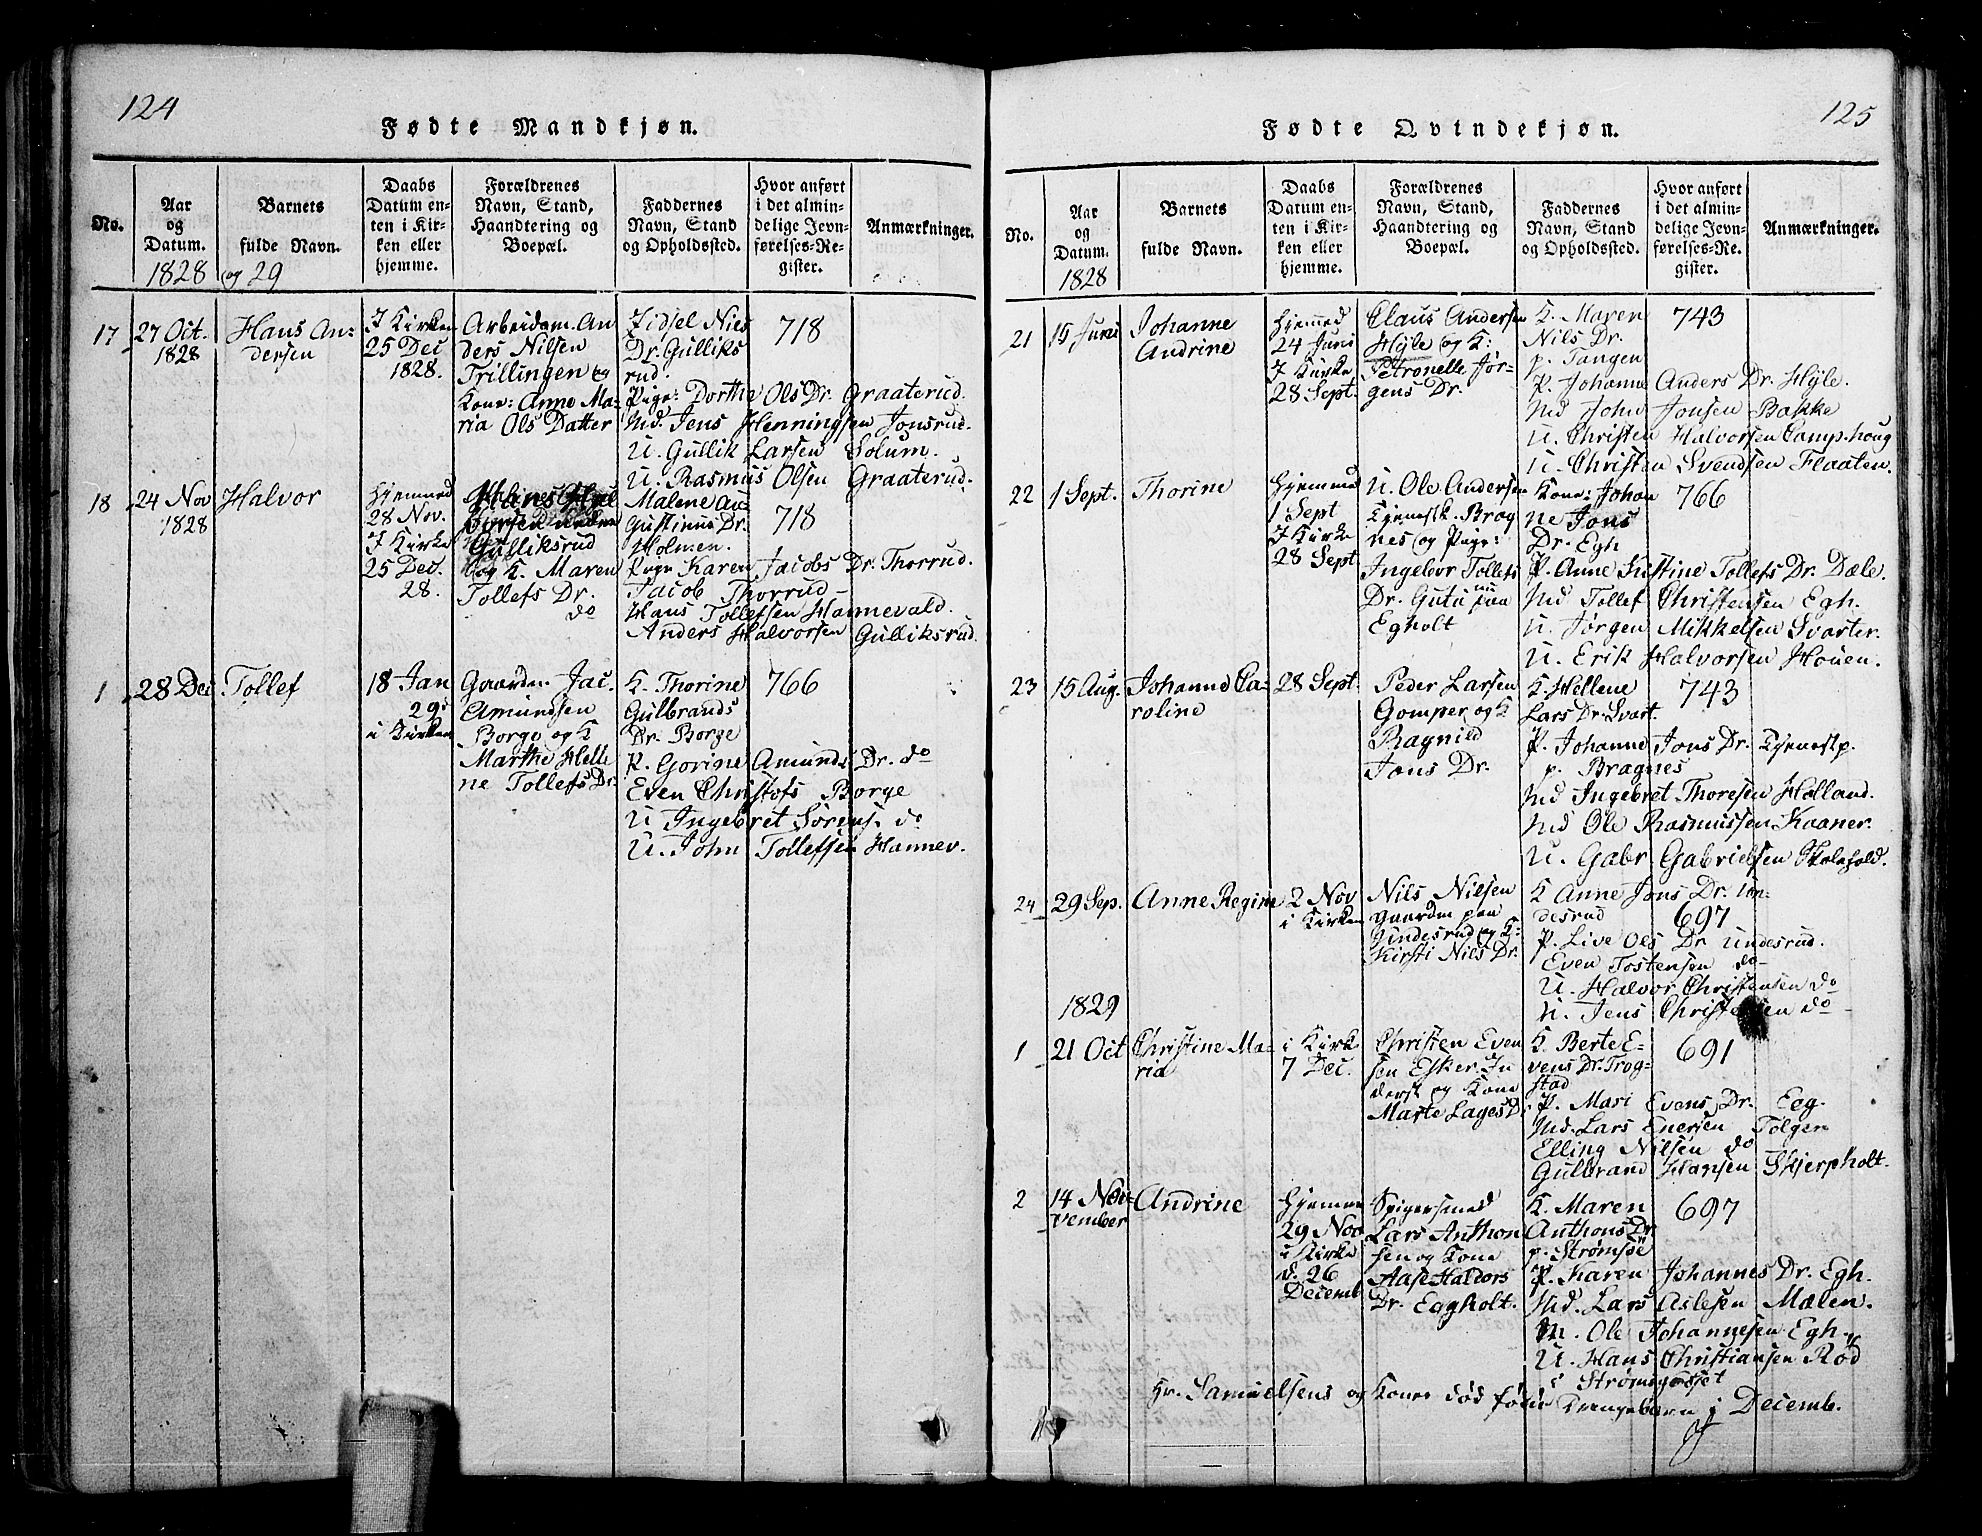 124
Fødte Mandkjøn.
No.
Aar
og
Datum.
1828 og 29
Barnets
fulde Navn.
Daabs
Datum en-
ten i Kir-
ken eller
hjemme.
Forældrenes
Navn, Stand,
Haandtering og
Boepæl.
Faddernes
Navn, Stand
og Opholdssted.
Hvor anført
i det almin-
delige Jevn-
førelses-Re-
gister.
Anmærkninger.
17
27 Oct.
1828
Hans An-
dersen
I Kirken
25 Dec
1828.
Arbeidsm. An
ders Nilsen
Trillingen og
Kone: Anne Ma-
ria Ols Datter
Zidsel Niels
Dr. Gulliks
rud.
Pige: Dorthe Ols Dr. Graaterud.
Md. Jens Henningsen Jonsrud.
U. Gullik Larsen Solum.
U. Rasmus Olsen Graaterud.
718
18
24 Nov
1828
Halvor
Hjemmed
28 Nov.
I Kirke
25 Dec.
28.
Gulliksrud
og K. Maren
Tollefs Dr.
do
Malene Au-
gustinus Dr.
Holmen.
Pige Karen Jacobs Dr. Thorrud.
Jacob Thorrud
Hans Tollefsen Hannevald.
Anders Halvorsen Gulliksrud.
718
1
28 Dec
Tollef
18 Jan
29
i Kirken
Gaardm. Jac.
Amundsen
Borge og K
Marthe Helle
ne Tollefs Dr.
K. Thorine
Gulbrands
Dr. Borge
P. Gorine Amunds Dr. do
Even Christofs Borge
U Ingebret Sørens. do
U. John Tollefsen Hannev.
766
125
Fødte Qvindekjøn.
No.
Aar
og
Datum.
1828
Barnets
fulde Navn.
Daabs
Datum en-
ten i Kir-
ken eller
hjemme.
Forældrenes
Navn, Stand,
Haandtering og
Boepæl.
Faddernes
Navn, Stand
og Opholdssted.
Hvor anført
i det almin-
delige Jevn-
førelses-Re-
gister.
Anmærkninger.
21
15 Juni
Johanne
Andrine
Hjemmed
24 Juni
I Kirke
28 Sept.
Claus Andersen
Hÿle og K:
Petronelle Jør-
gens Dr.
K. Maren
Nils Dr.
p. Tangen
P. Johanne Anders Dr. Hÿle.
Md John Jonsen Bakke
U. Christen Halvorsen Camp.houg
U. Christen Svendsen Flaaten.
743
22
1 Sept.
Thorine
Hjemmed
1 Sept
I Kirke
28 Sept
U. Ole Andersen
Tjenestk. Brag
nes og Pige:
Ingebor Tollefs
Dr.
Egholt
Kone: Johan
ne Jons
Dr. Egh
P. Anne Kistine Tollefs Dr. Dæle.
Md Tollef Christensen Egh.
U. Jørgen Mikkelsen Svarter.
U. Erik Halvorsen Houen.
766
23
15 Aug.
Johanne Ca-
roline
28 Sept.
Peder Larsen
Gomper og K
Ragnild
Jons Dr.
K Hellene
Lars Dr. Svart.
P. Johanne Jons Dr. Tjenestp.
p. Bragnes
Md Ingebret Thoresen Holland.
Md Ole Rasmussen Kaaner.
U. Gabr. Gabrielsen
743
24
29 Sep.
Anne Regine
2 Nov
i Kirken
Nils Nilsen
Gaardm paa
Undesrud og K:
Kirsti Nils Dr.
K Anne Jons Dr. Un-
desrud
P. Live Ols Dr Undesrud.
Even Tostensen do
U. Halvor Christensen do
U. Jens Christensen do
697
1829
1
21 Oct
Christine Ma-
ria
i Kirk
7 Dec.
Christen Even
sen Esker In
derst og Kone
Marte Lages Dr
K. Berte E-
vens Dr. Trog-
stad
P. Mari Evens Dr. Eeg.
Md. Lars Enersen Tolger
Elling Nilsen do
Gulbrand Hansen Skjerpholt.
691
2
14 No-
vember
Andrine
Hjemme
29 Nov
i Kirke
d. 26
Decemb
Spigersmed
Lars Anthon
sen og Kone
Aase Haldors
Dr. Eggholt.
K. Maren
Anthons Dr.
p. Strømsøe
P. Karen Johannes Dr. Egh.
Md. Lars Aslesen Mælen.
M. Ole Johannesen Egh.
U. Hans Christiansen Röd
i Strømsgodset
697
Hr. Samuelsens og Kones död föd Drengebarn i Decemb.